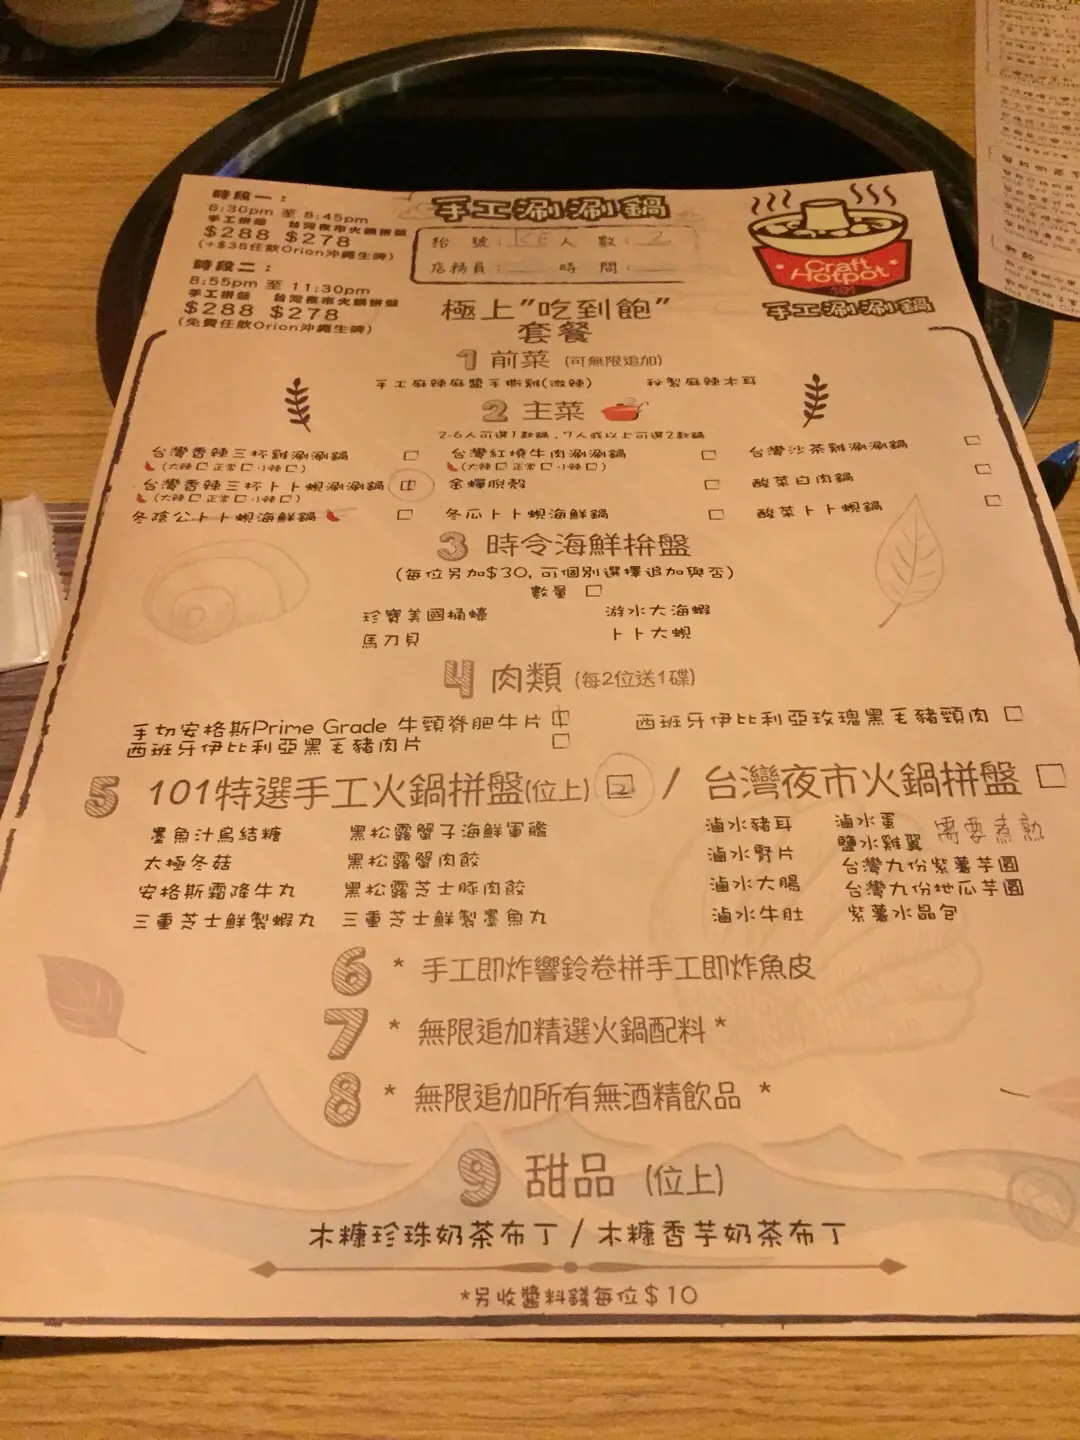 時段一：
6:30pm 至 8:45pm
手工拼盤 台灣夜市火鍋拼盤
$288 $278
(+$38任飲Orion沖繩生啤)
時段二：
8:55pm 至 11:30pm
手工拼盤 台灣夜市火鍋拼盤
$288 $278
(免費任飲Orion沖繩生啤)
手工涮涮鍋
枱 號： 人 數：2
店務員： 時 間：
Craft
Hotpot
手工涮涮鍋
極上"吃到飽"
套餐
1 前菜 (可無限追加)
手工麻辣麻醬手撕雞(微辣) 秘製麻辣木耳
2 主菜
2-6人可選1款鍋，7人或以上可選2款鍋
台灣香辣三杯雞涮涮鍋 台灣紅燒牛肉涮涮鍋 台灣沙茶雞涮涮鍋
(大辣 正常 小辣) (大辣 正常 小辣)
台灣香辣三杯卜卜蜆涮涮鍋 金蟬脫殼 酸菜白肉鍋
(大辣 正常 小辣)
冬陰公卜卜蜆海鮮鍋 冬瓜卜卜蜆海鮮鍋 酸菜卜卜蜆鍋
3 時令海鮮拼盤
(每位另加$30，可個別選擇追加與否)
數量
珍寶美國桶蠔 游水大海蝦
馬刀貝 卜卜大蜆
4 肉類 (每2位送1碟)
手切安格斯Prime Grade 牛頸脊肥牛片 西班牙伊比利亞玫瑰黑毛豬頸肉
西班牙伊比利亞黑毛豬肉片
5 101特選手工火鍋拼盤(位上) 2 / 台灣夜市火鍋拼盤
墨魚汁烏結糖 黑松露蟹子海鮮軍艦 滷水豬耳 滷水蛋
太極冬菇 黑松露蟹肉餃 滷水腎片 鹽水雞翼 需要煮熟
安格斯霜降牛丸 黑松露芝士豚肉餃 滷水大腸 台灣九份紫薯芋圓
三重芝士鮮製蝦丸 三重芝士鮮製墨魚丸 滷水牛肚 台灣九份地瓜芋圓
紫薯水晶包
6 * 手工即炸響鈴卷拼手工即炸魚皮
7 * 無限追加精選火鍋配料 *
8 * 無限追加所有無酒精飲品 *
9 甜品 (位上)
木糠珍珠奶茶布丁 / 木糠香芋奶茶布丁
*另收醬料錢每位$10